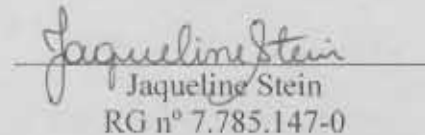 Jaqueline Stein
Jaqueline Stein
RG nº 7.785.147-0